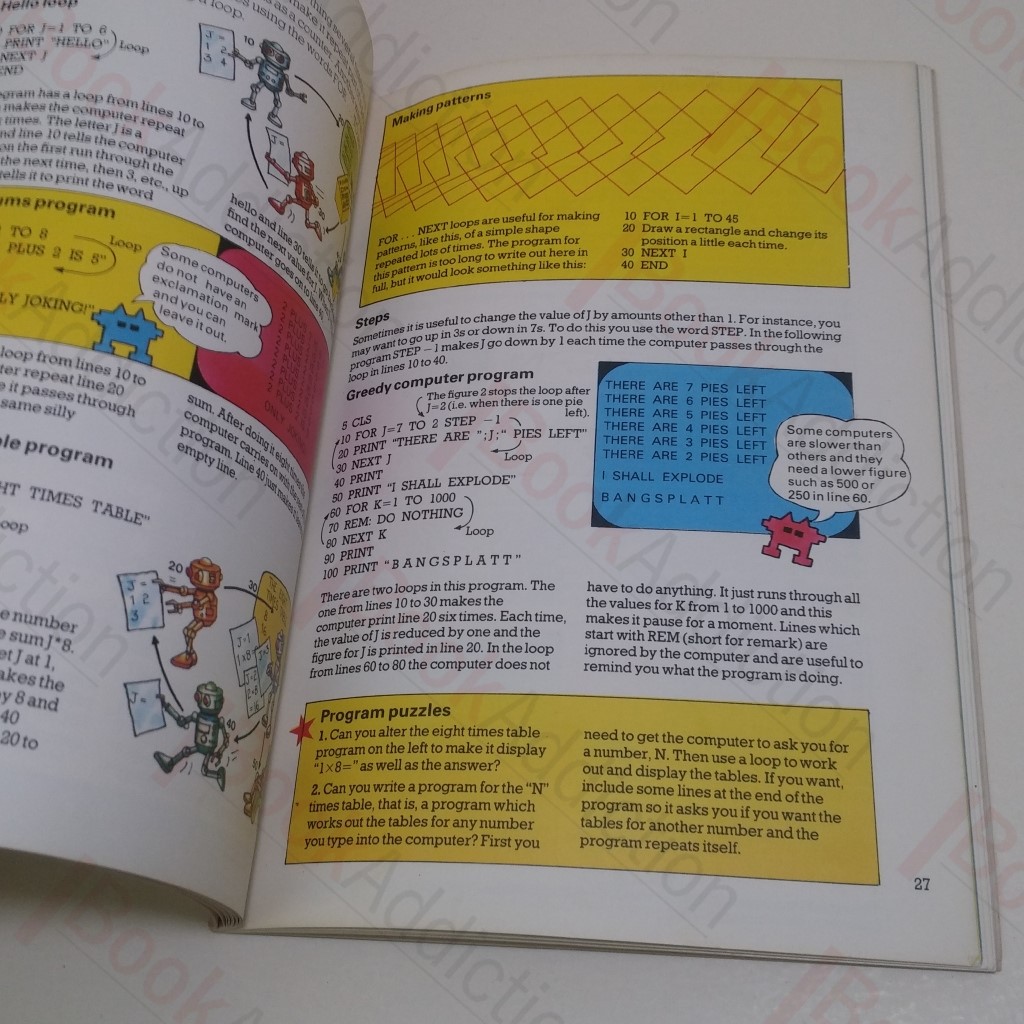 Hello loop
FOR J=1 TO 6
PRINT "HELLO"
NEXT J
END
Loop
a loop.
program has a loop from lines 10 to
makes the computer repeat
times. The letter J is a
and line 10 tells the computer
on the first run through the
the next time, then 3, etc., up
tells it to print the word
hello and line 30
find the next value for J.
computer goes on to line
sums program
TO 8
PLUS 2 IS 5"
Loop
LY JOKING!"
Some computers
do not have an
exclamation mark
and you can
leave it out.
loop from lines 10 to
repeat line 20
it passes through
same silly
sum. After doing it eight times the
computer carries on with the
program. Line 40 just makes
empty line.
program
TIMES TABLE"
number
sum J*8.
J at 1,
makes the
by 8 and
40
20 to
10
20
30
40
J=
1 2
3 4
J=
J=
1 2
3
J=
J=1
1×8
Making patterns
FOR . . . NEXT loops are useful for making
patterns, like this, of a simple shape
repeated lots of times. The program for
this pattern is too long to write out here in
full, but it would look something like this:
10 FOR I=1 TO 45
20 Draw a rectangle and change its
position a little each time.
30 NEXT I
40 END
Steps
Sometimes it is useful to change the value of J by amounts other than 1. For instance, you
may want to go up in 3s or down in 7s. To do this you use the word STEP. In the following
program STEP −1 makes J go down by 1 each time the computer passes through the
loop in lines 10 to 40.
Greedy computer program
The figure 2 stops the loop after
J=2 (i.e. when there is one pie
left).
5 CLS
10 FOR J=7 TO 2 STEP −1
20 PRINT "THERE ARE ";J;" PIES LEFT"
30 NEXT J
Loop
40 PRINT
50 PRINT "I SHALL EXPLODE"
60 FOR K=1 TO 1000
70 REM: DO NOTHING
80 NEXT K
Loop
90 PRINT
100 PRINT "BANGSPLATT"
THERE ARE 7 PIES LEFT
THERE ARE 6 PIES LEFT
THERE ARE 5 PIES LEFT
THERE ARE 4 PIES LEFT
THERE ARE 3 PIES LEFT
THERE ARE 2 PIES LEFT
I SHALL EXPLODE
BANGSPLATT
Some computers
are slower than
others and they
need a lower figure
such as 500 or
250 in line 60.
There are two loops in this program. The
one from lines 10 to 30 makes the
computer print line 20 six times. Each time,
the value of J is reduced by one and the
figure for J is printed in line 20. In the loop
from lines 60 to 80 the computer does not
have to do anything. It just runs through all
the values for K from 1 to 1000 and this
makes it pause for a moment. Lines which
start with REM (short for remark) are
ignored by the computer and are useful to
remind you what the program is doing.
Program puzzles
1. Can you alter the eight times table
program on the left to make it display
"1×8=" as well as the answer?
2. Can you write a program for the "N"
times table, that is, a program which
works out the tables for any number
you type into the computer? First you
need to get the computer to ask you for
a number, N. Then use a loop to work
out and display the tables. If you want,
include some lines at the end of the
program so it asks you if you want the
tables for another number and the
program repeats itself.
27
BookAddiction